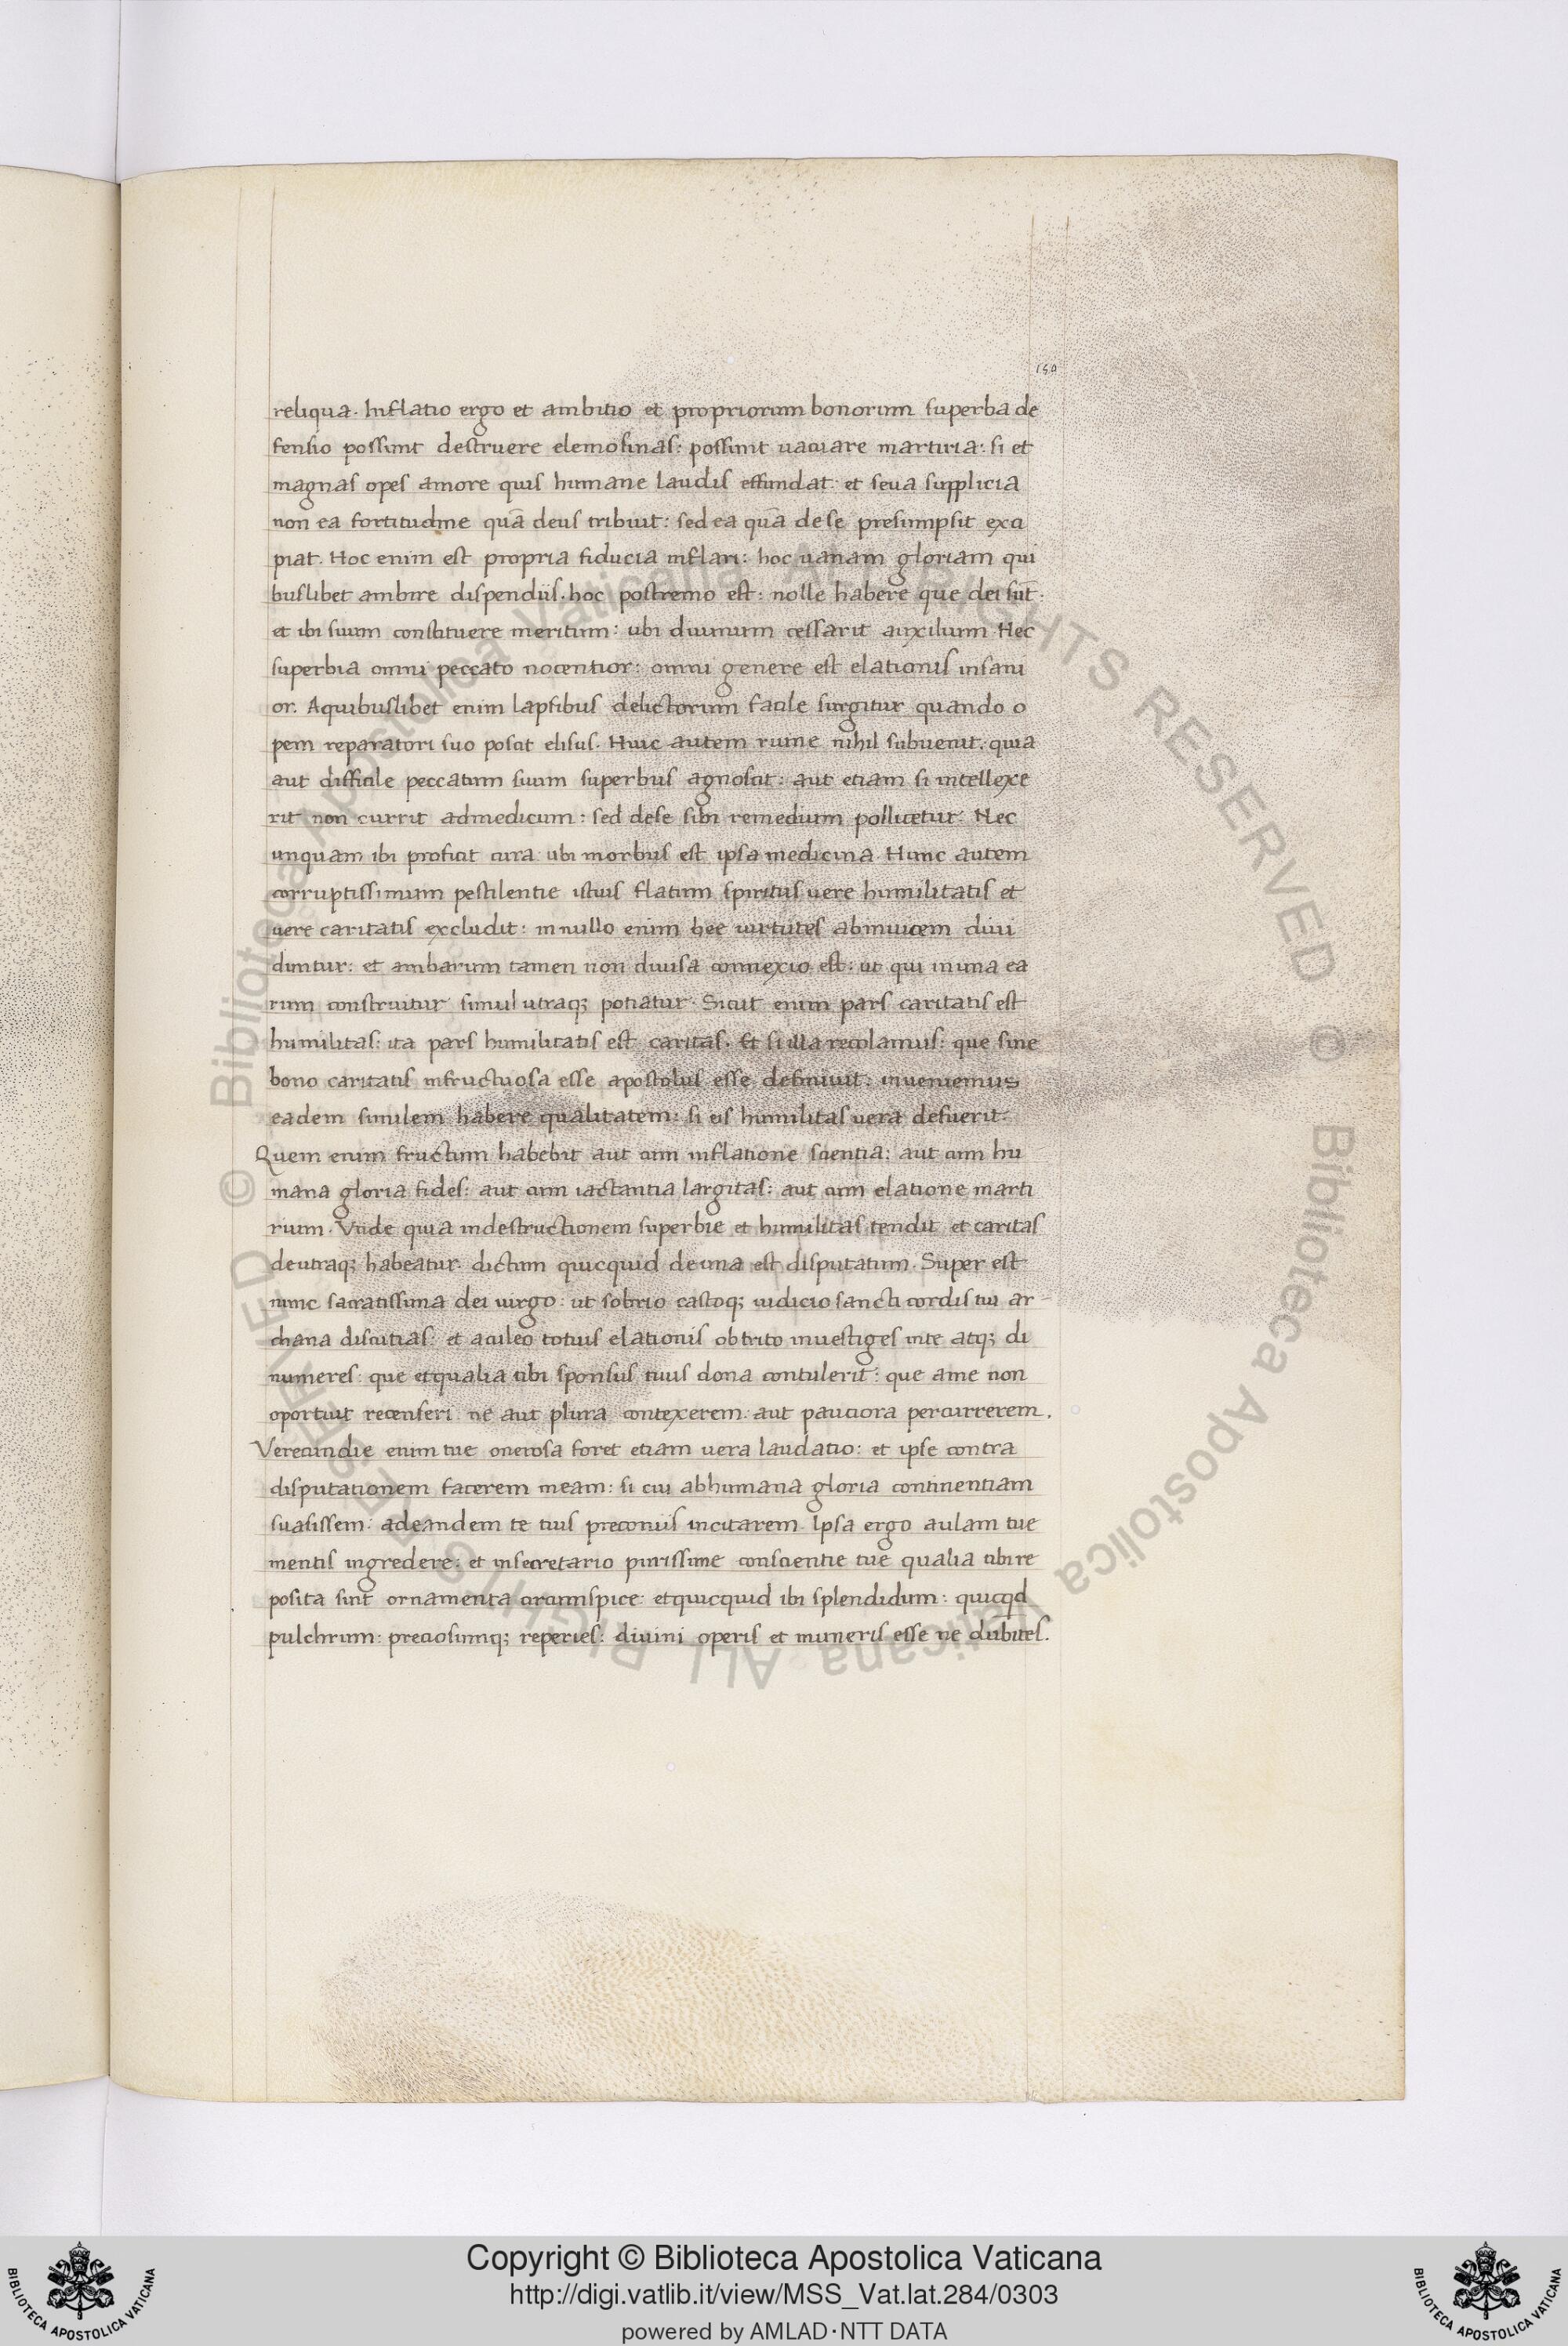 150
reliqua. Inflatio ergo et ambitio et propriorum bonorum superba de
fensio possunt destruere elemosinas: possunt uacuare martiria: si et
magnas opes amore quis humane laudis effundat: et seua supplicia
non ea fortitudine quā deus tribuit: sed ea quā de se presumpsit exci
piat. Hoc enim est propria fiducia inflari: hoc uanam gloriam qui
buslibet ambire dispendiis. hoc postremo est: nolle habere que dei sūt:
et ibi suum constituere meritum: ubi diuinum cessarit auxilium. Hec
superbia omni peccato nocentior: omni genere est elationis insani
or. Aquibuslibet enim lapsibus delictorum facile surgitur quando o
pem reparatori suo poscit elisus. Huic autem ruine nihil subuenit: quia
aut difficile peccatum suum superbus agnoscit: aut etiam si intellexe
rit non currit admedicum: sed dese sibi remedium pollicetur. Nec
unquam ibi proficit cura ubi morbus est ipsa medicina. Hunc autem
corruptissimum pestilentie istius flatum spiritus uere humilitatis et
uere caritatis excludit: in nullo enim hee uirtutes abinuicem diui
duntur: et ambarum tamen non diuisa connexio est: ut qui in una ea
rum construitur simul utraq; potiatur. Sicut enim pars caritatis est
humilitas: ita pars humilitatis est caritas. Et si illa recolamus: que sine
bono caritatis infructuosa esse apostolus esse definiuit: inueniemus
eadem similem habere qualitatem: si eis humilitas uera defuerit.
Quem enim fructum habebit aut cum inflatione scientia: aut cum hu
mana gloria fides: aut cum iactantia largitas: aut cum elatione marti
rium. Vnde quia indestructionem superbie et humilitas tendit et caritas
deutraq; habeatur dictum quicquid deuna est disputatum. Super est
nunc sacratissima dei uirgo: ut sobrio castoq; iudicio sancti cordis tui ar-
chana discutias: et aculeo totius elationis obtrito inuestiges inte atq; di
numeres: que etqualia tibi sponsus tuus dona contulerit: que ame non
oportuit recenseri ne aut plura contexerem. aut pauciora percurrerem.
Verecundie enim tue onerosa foret etiam uera laudatio: et ipse contra
disputationem facerem meam: si cui abhumana gloria continentiam
suasissem: adeandem te tuis preconiis incitarem. Ipsa ergo aulam tue
mentis ingredere: et insecretario purissime conscientie tue qualia tibi re
posita sint ornamenta circumspice: etquicquid ibi splendidum: quicqd
pulchrum: preciosumq; reperies: diuini operis et muneris esse ne dubites.
© Biblioteca Apostolica Vaticana ALL RIGHTS RESERVED © Biblioteca Apostolica Vaticana ALL RIGHTS RESERVED
Copyright © Biblioteca Apostolica Vaticana
http://digi.vatlib.it/view/MSS_Vat.lat.284/0303
powered by AMLAD·NTT DATA
BIBLIOTECA APOSTOLICA VATICANA
BIBLIOTECA APOSTOLICA VATICANA